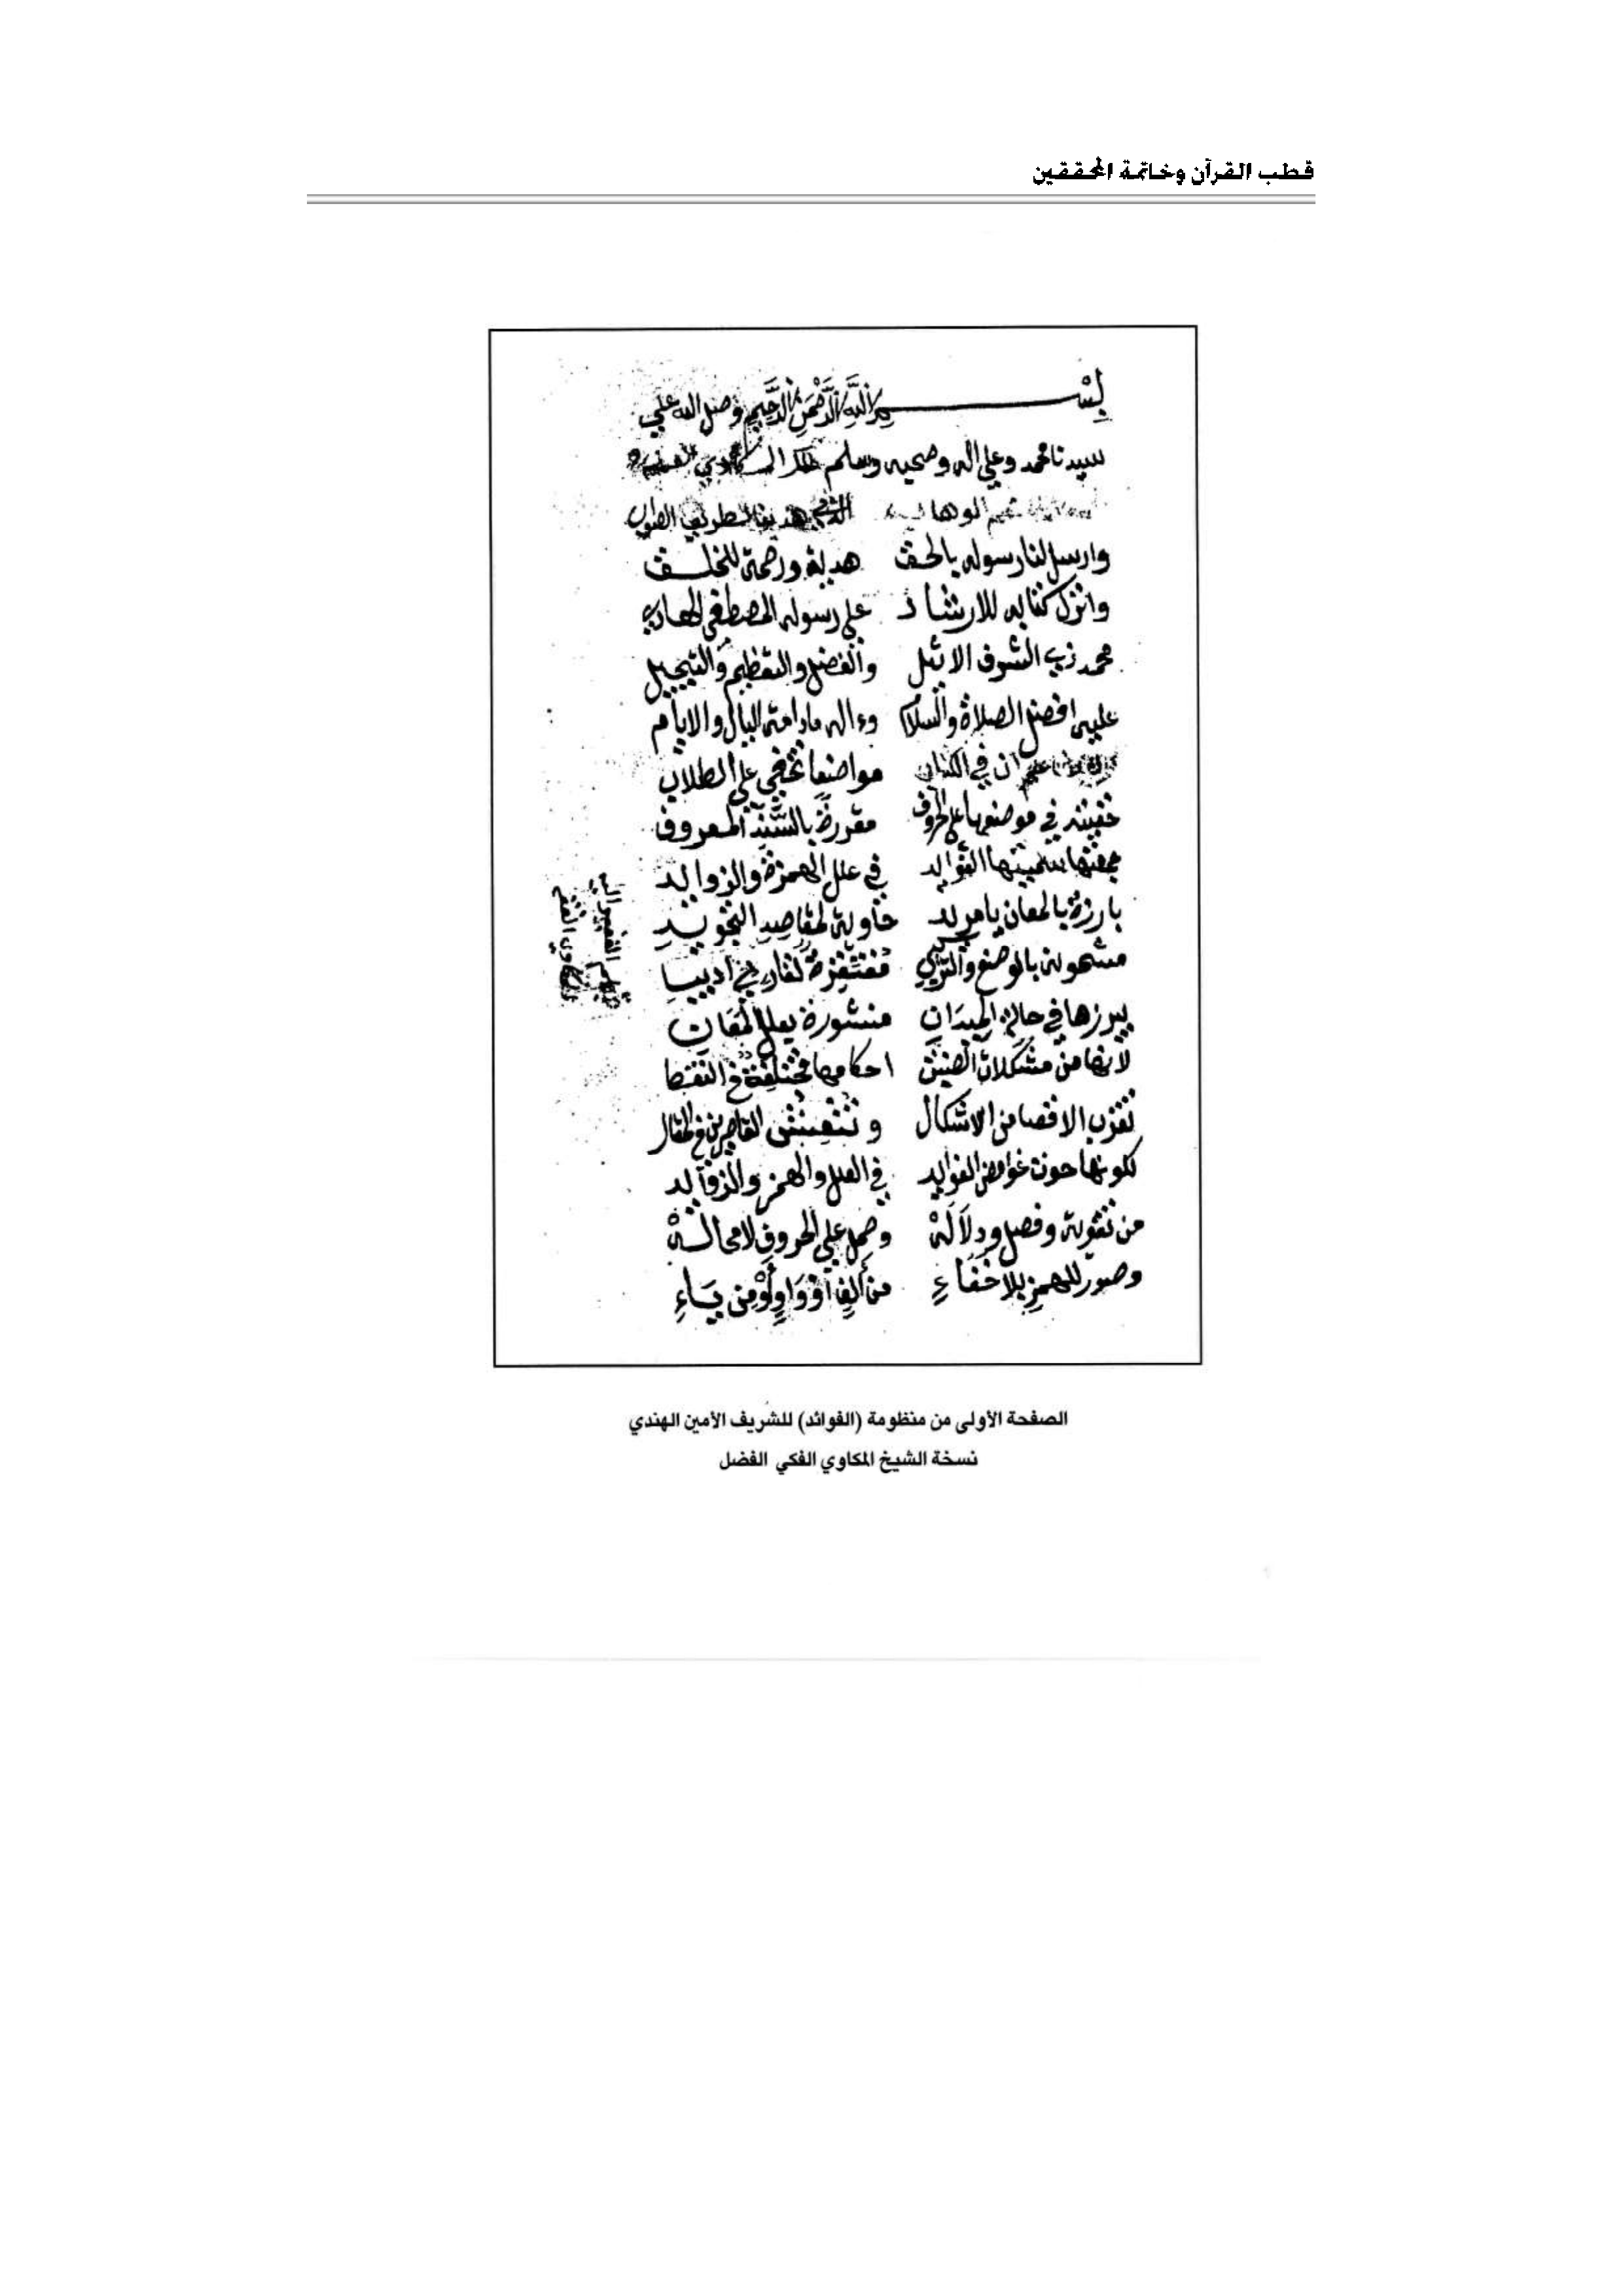 قطب القرآن وخاتمة المحققين
بسم الله الرحمن الرحيم وصل الله علي
سيدنا محمد وعلي اله وصحبه وسلم
الوهاب الشيخ الطريف
وارسل لنا رسوله بالحق هدية ورحمة للخلق
وانزل كتابه للارشاد علي رسوله المصطفي الهادي
محمد ذي الشرف الاثيل والفضل والتعظيم والتبجيل
عليه افضل الصلاة والسلام وءاله مادامة اليال والايام
ان في الكتاب مواضعا تخفي علي الطلاب
خفيته في موضعها علي الحروف مقررة بالسند المعروف
جمعتها سميتها الفوايد في علل الهمزة والزوايد
بارزة بالمعان يامريد حاوية لمقاصد التجويد
مشمولة بالوضع والتركيب مفتقرة لقارئ اديب
يبرزها في حالة الميدان منشورة بعلل المعان
لانها من مشكلات الضبط احكامها مختلفة في النقط
تقرب الاقصا من الاشكال و القاصرين في المقال
لكونها حوت غوامض الفوايد في العلل والهمز والزوايد
من تقوية وفصل ودلالة وحمل علي الحروف لا محالة
وصور للهمز بلا خفاء من ألف أو واو أو من ياء
الصفحة الأولى من منظومة (الفوائد) للشريف الأمين الهندي
نسخة الشيخ المكاوي الفكي الفضل